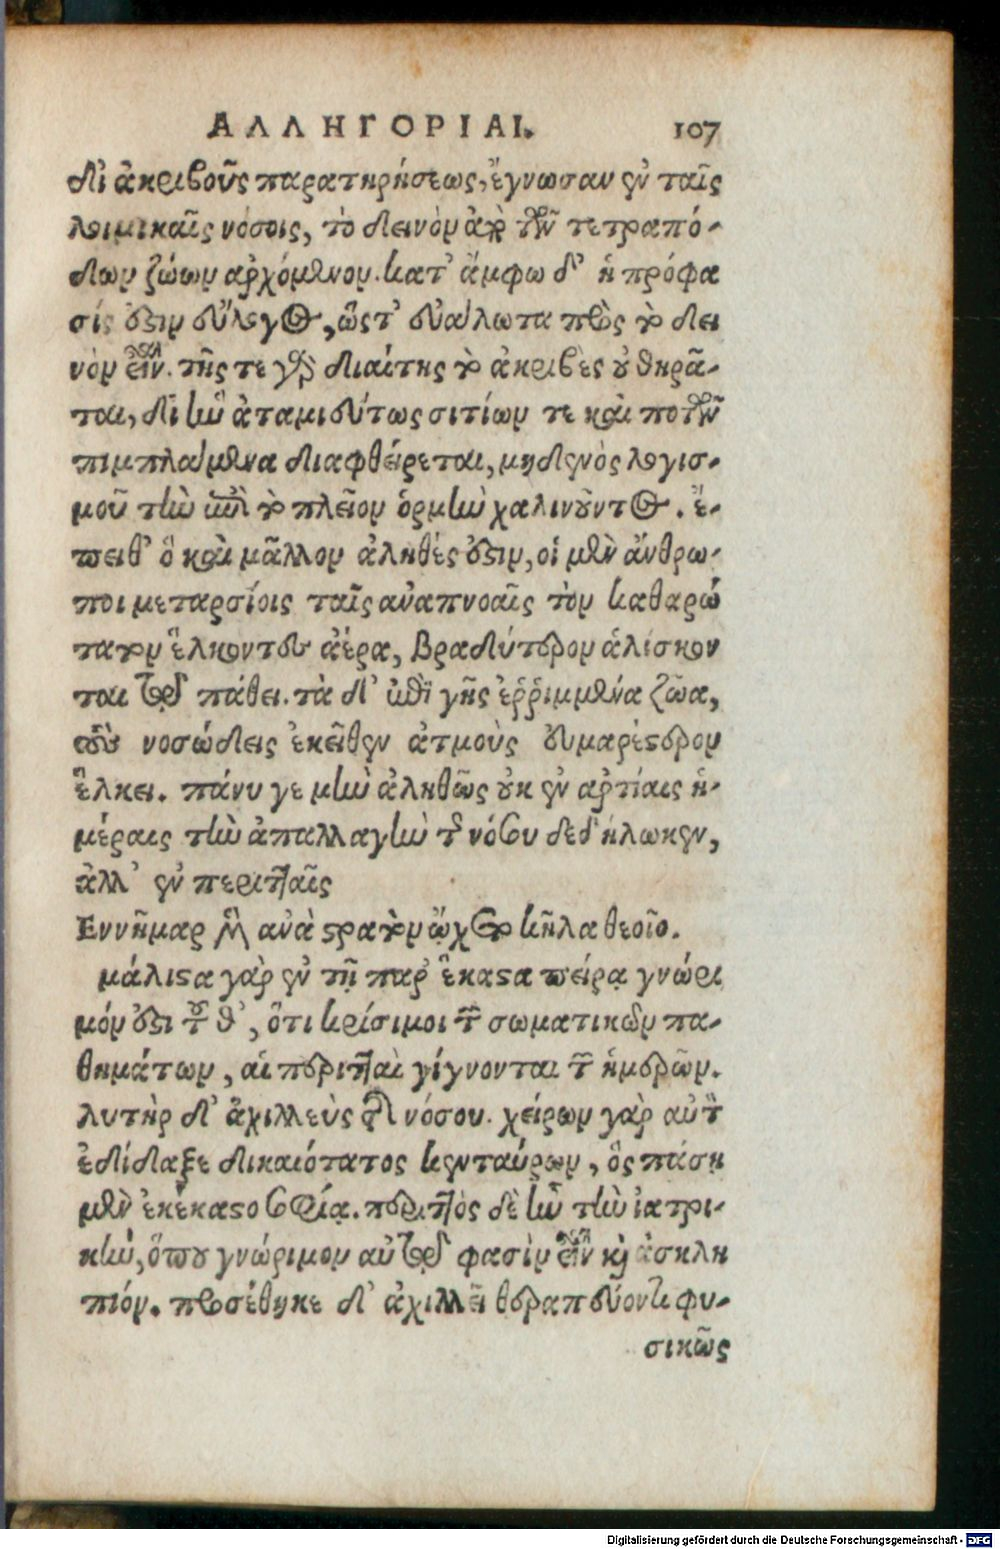 ΑΛΛΗΓΟΡΙΑΙ. 107
δι' ἀκριβοῦς παρατηρήσεως, ἔγνωσαν ἐν ταῖς
λοιμικαῖς νόσοις, τὸ δεινὸν ἀπὸ τῶν τετραπό-
δων ζώων ἀρχόμενον. κατ' ἄμφω δ' ἡ πρόφα
σίς ἐστιν εὔλογος, ὥστ' εὐάλωτα πρὸς τὸ δει
νὸν εἶναι. τῆς τε γὰρ διαίτης τὸ ἀκριβὲς οὐ θηρᾶ-
ται, δι' ἣν ἀταμιεύτως σιτίων τε καὶ ποτῶν
πιμπλάμενα διαφθείρεται, μηδενὸς λογισ-
μοῦ τὴν ἐπὶ τὸ πλεῖον ὁρμὴν χαλινοῦντος. ἔ-
πειθ' ὃ καὶ μᾶλλον ἀληθές ἐστιν, οἱ μὲν ἄνθρω-
ποι μεταρσίοις ταῖς ἀναπνοαῖς τὸν καθαρώ
τατον ἕλκοντες ἀέρα, βραδύτερον ἁλίσκον
ται τῷ πάθει. τὰ δ' ἐπὶ γῆς ἐῤῥιμμένα ζῶα,
τοὺς νοσώδεις ἐκεῖθεν ἀτμοὺς εὐμαρέστερον
ἕλκει. πάνυ γε μὴν ἀληθῶς οὐκ ἐν ἀρτίαις ἡ-
μέραις τὴν ἀπαλλαγὴν τοῦ νόσου δεδήλωκεν,
ἀλλ' ἐν περιτταῖς
Εννῆμαρ μὲν ἀνὰ στρατὸν ᾤχετο κῆλα θεοῖο.
μάλιστα γὰρ ἐν τῇ παρ' ἕκαστα πείρᾳ γνώρι
μόν ἐστι τοῦθ', ὅτι κρίσιμοι τῶν σωματικῶν πα-
θημάτων, αἱ περιτταὶ γίγνονται τῶν ἡμερῶν.
λυτὴρ δ' ἀχιλλεὺς τῆς νόσου. χείρων γὰρ αὐτὸν
ἐδίδαξε δικαιότατος κενταύρων, ὃς πάσῃ
μὲν ἐκέκαστο σοφίᾳ. περιττὸς δὲ ἦν τὴν ἰατρι-
κὴν, ὅπου γνώριμον αὐτῷ φασὶν εἶναι καὶ ἀσκλη
πιόν. προσέθηκε δ' ἀχιλλεῖ θεραπεύοντι φυ-
σικῶς
Digitalisierung gefördert durch die Deutsche Forschungsgemeinschaft - DFG